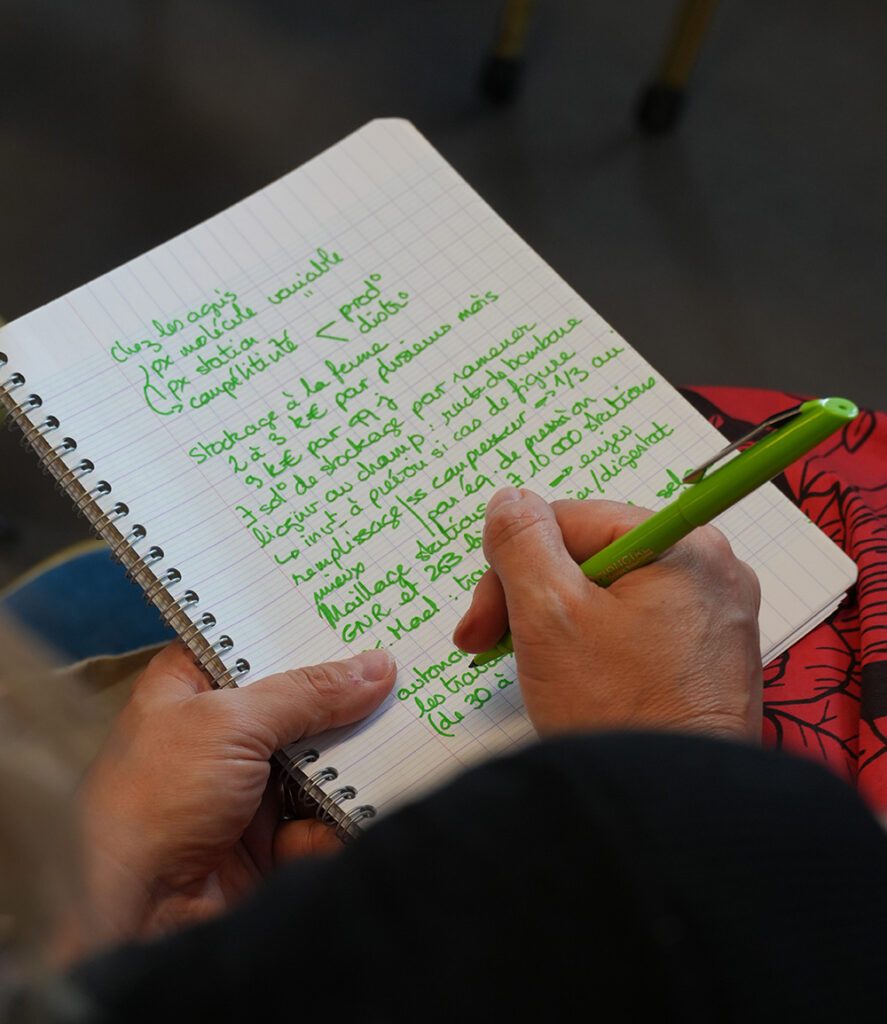 chez les agris
px molécule variable
px station "
→ compétitivité < prod°
distri°
Stockage à la ferme
2 à 3 k€ par plusieurs mois
9 k€ par
7 sol° de stockage pour ramener
au champ : racks de bombone
↳ invt à prévoir si cas de figure
remplissage ss compresseur → 1/3 au
mieux par eq. de pression
Maillage stations 10 000 stations
GNR et 263
Mael : /digestat
autonom
les trav
(de 30 à